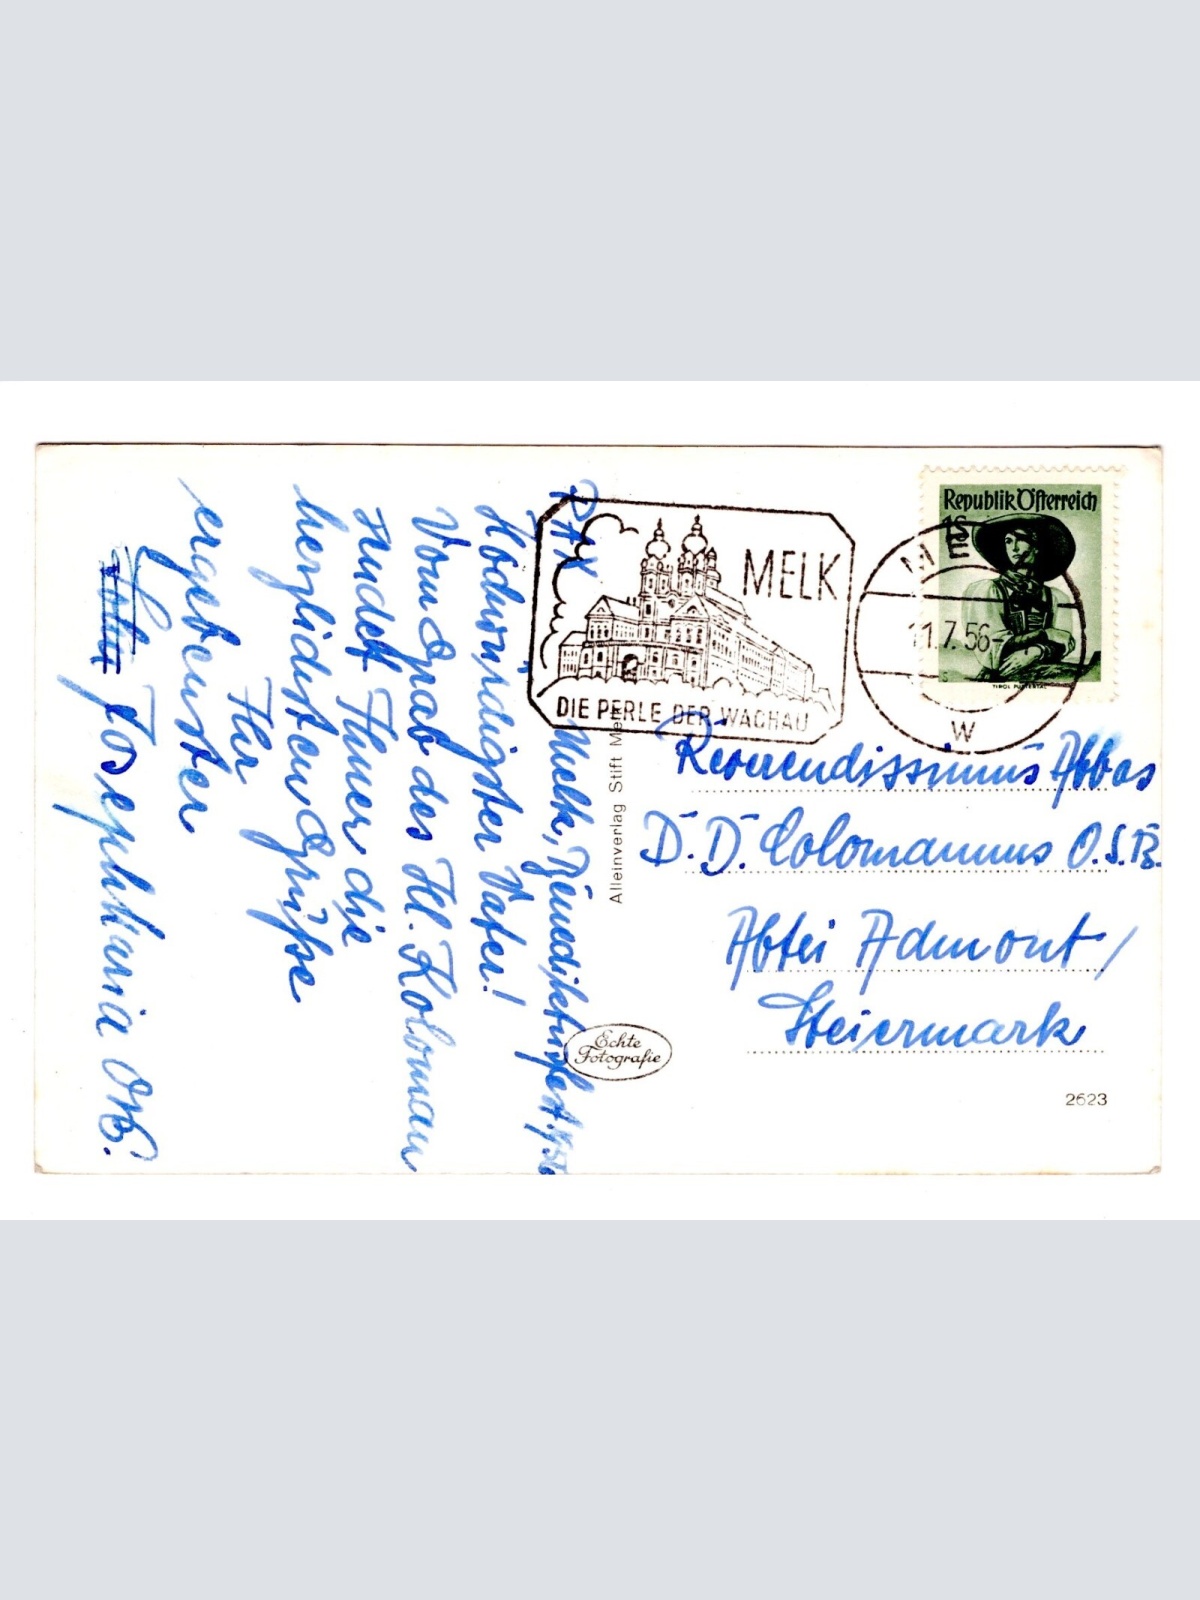 PAX Melk, Benediktusfest
Hochwürdigster Vater!
Vom Grab des Hl. Koloman
sendet Ihnen die
herzlichsten Grüße
Ihr
ergebenster
Fr. Josephmaria OSB.
Alleinverlag Stift Melk
Echte
Fotografie
MELK
DIE PERLE DER WACHAU
MELK
11.7.56
W
Republik Österreich
1S
TIROL PUSTERTAL
Reverendissimus Abbas
D.D. Colomannus O.S.B.
Abtei Admont/
Steiermark
2623